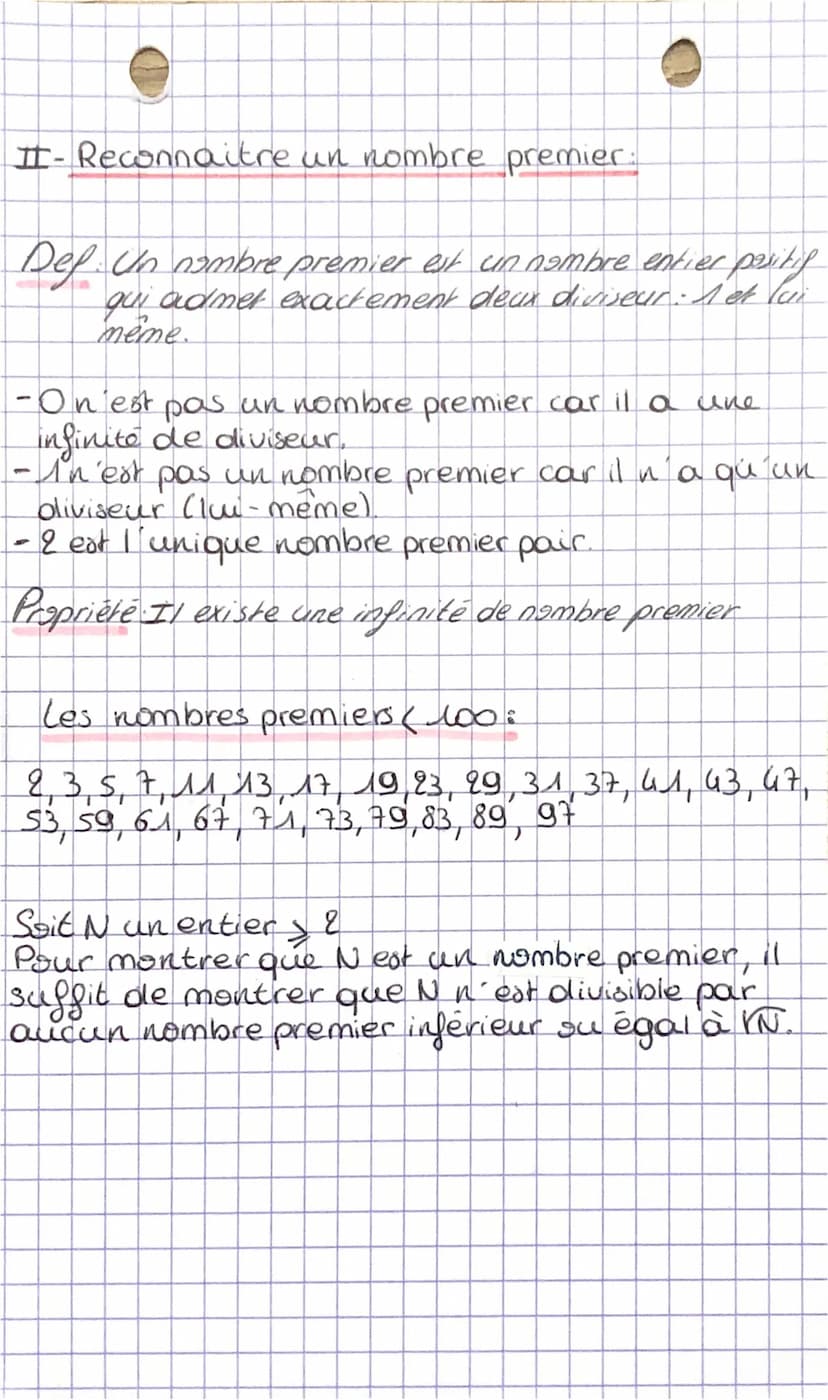 II- Reconnaitre un nombre premier:
Def: Un nombre premier est un nombre entier positif
qui admet exactement deux diviseur: 1 et lui
même.
- 0 n'est pas un nombre premier car il a une
infinité de diviseur.
- 1 n'est pas un nombre premier car il n'a qu'un
diviseur (lui-même).
- 2 est l'unique nombre premier pair.
Propriété: Il existe une infinité de nombre premier
Les nombres premiers < 100:
2, 3, 5, 7, 11, 13, 17, 19, 23, 29, 31, 37, 41, 43, 47,
53, 59, 61, 67, 71, 73, 79, 83, 89, 97
Soit N un entier ⩾ 2
Pour montrer que N est un nombre premier, il
suffit de montrer que N n'est divisible par
aucun nombre premier inférieur ou égal à √N.